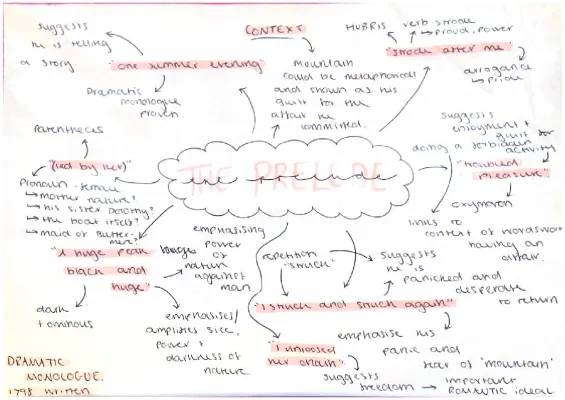 suggests
he is telling
a story
"one summer evening"
Dramatic
monologue
proven.
CONTEXT
mountain
could be metaphorical
and shown as his
guilt for the
affair he
committed.
HUBRIS
verb strode
→ proud, power
"strode after me"
arrogance
→ pride
suggests
enjoyment +
guilt for
doing a forbidden
activity
"troubled
pleasure"
oxymoron
links to
context of wordsworth
having an
affair.
parentheces
"(led by her)"
pronoun - female
→ mother nature?
→ his sister Dorothy?
→ the boat itself?
→ maid of Butter-
mere?
THE PRELUDE
the prelude
"A huge peak
black and
huge"
dark
+ ominous
emphasising
power
of
nature
against
man.
emphasises/
amplifies size,
power +
darkness of
nature
repetition
"struck"
suggests
he is
panicked and
desperate
to return
"I struck and struck again"
emphasise his
panic and
fear of 'mountain'
"I unloosed
her chain"
suggests
freedom → important
ROMANTIC ideal
DRAMATIC
MONOLOGUE.
1798 written